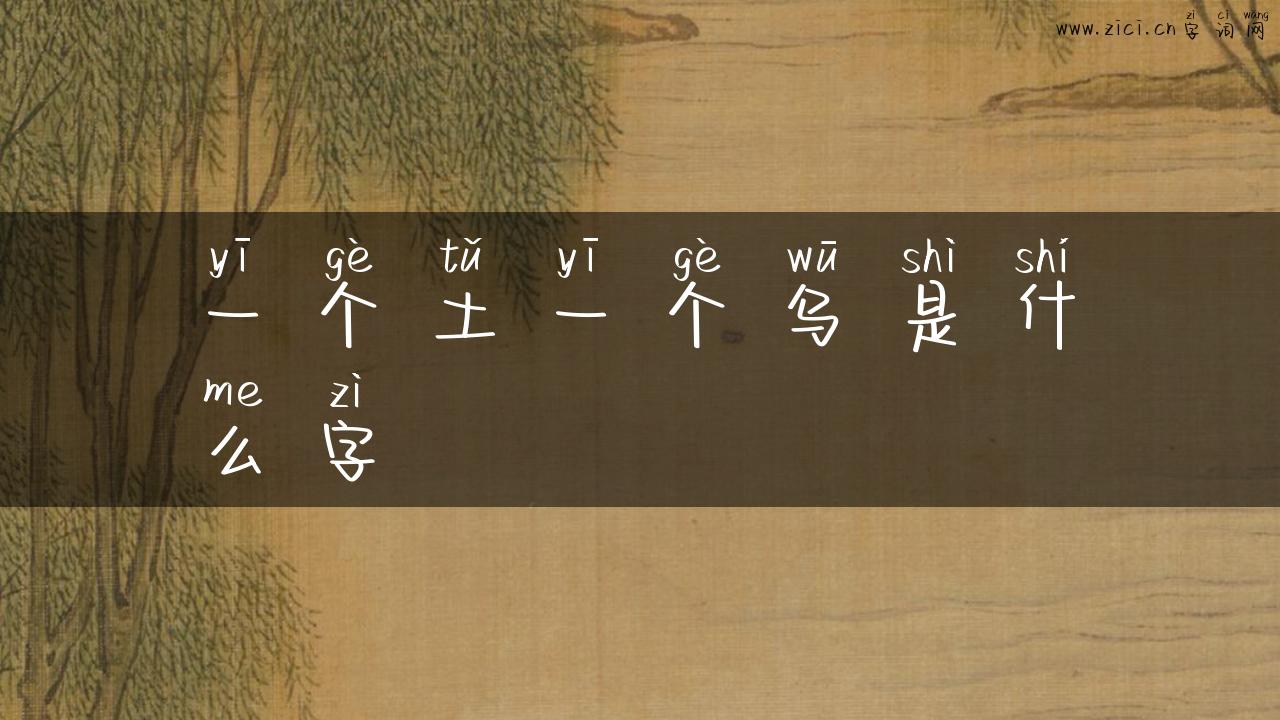 zì cí wǎng
www.zici.cn 字词网
yī gè tǔ yī gè wū shì shí
一个土一个乌是什
me zì
么字